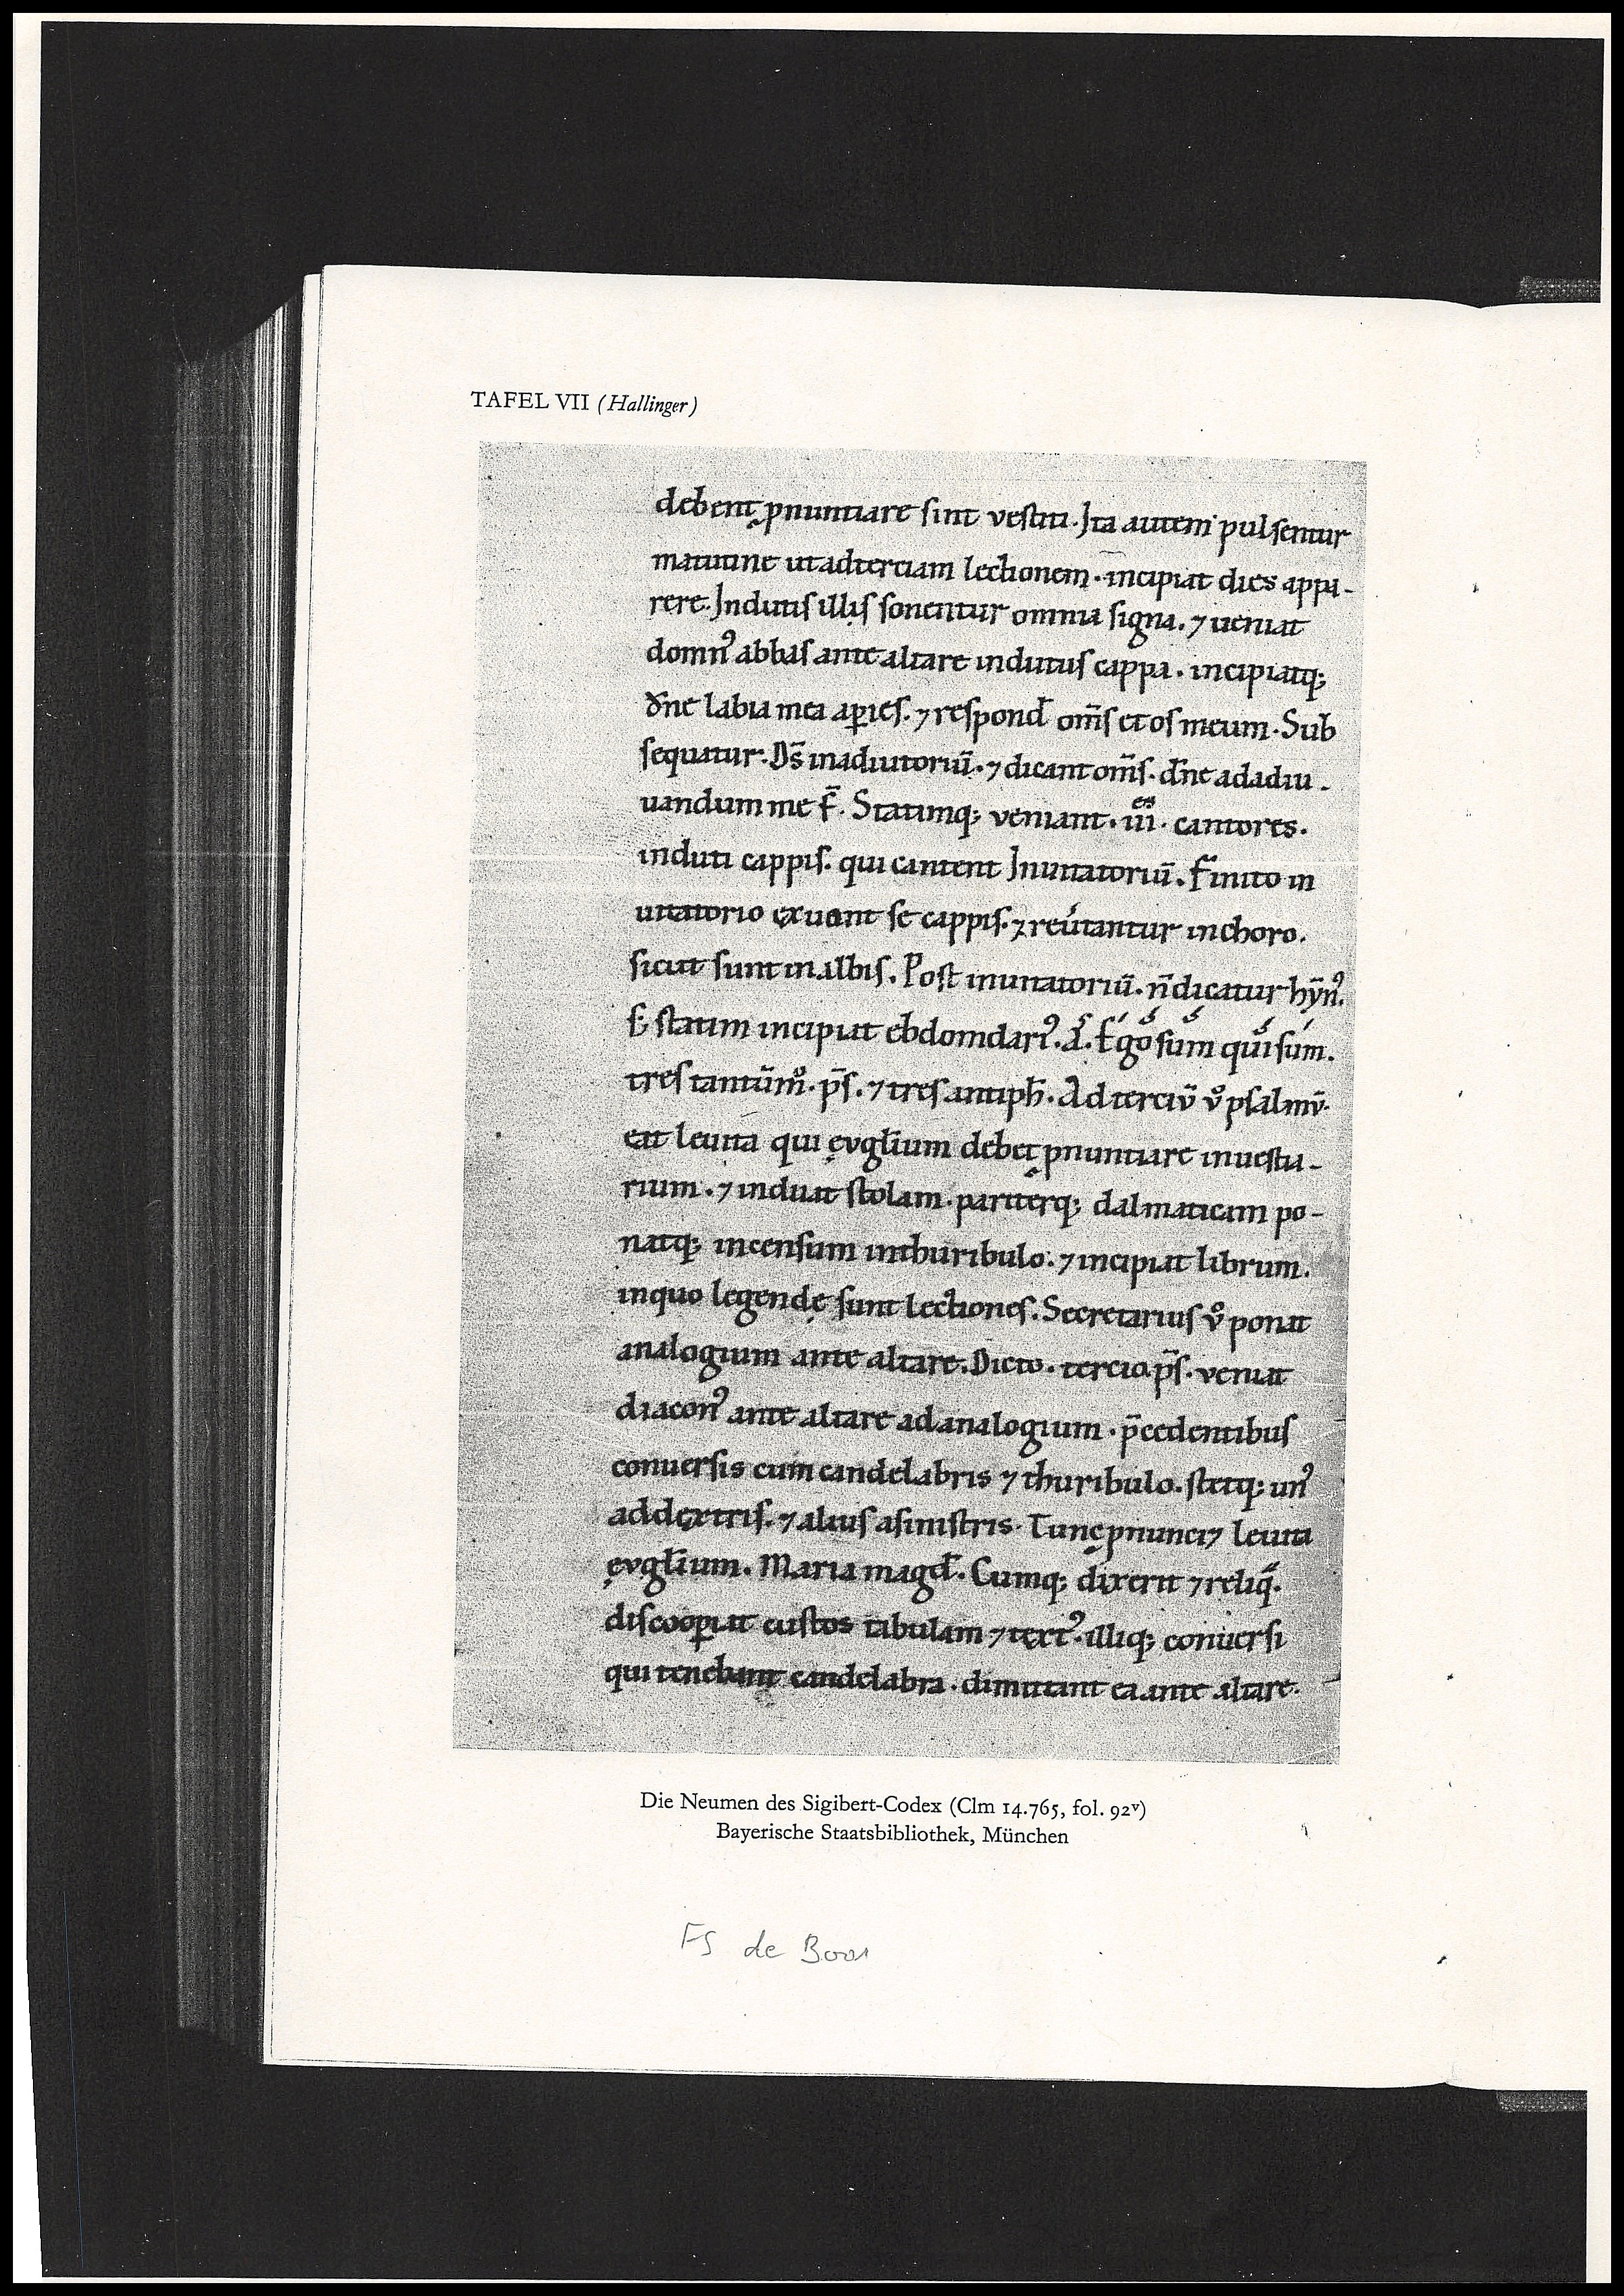 TAFEL VII (Hallinger)
debent ꝓnuntiare sint vestiti. Ita autem pulsentur
matutine ut ad terciam lectionem. incipiat dies appa-
rere. Indutis illis sonentur omnia signa. ⁊ ueniat
domn᾿ abbas ante altare indutus cappa. incipiatq;
dn̄e labia mea aꝑies. ⁊ respond̄ om̄s et os meum. Sub
sequatur. Ds̄ in adiutoriū. ⁊ dicant om̄s. dn̄e ad adiu-
uandum me f̄. Statimq; veniant. iii^es. cantores.
induti cappis. qui cantent Inuitatoriū. Finito in
uitatorio ęxuant se cappis. ⁊ reu᾿tantur in choro.
sicut sunt in albis. Post inuitatoriū. n̄ dicatur hȳn᾿.
s; statim incipiat ebdomdari᾿. A. Ego sum qui sum.
tres tantūm°. ps̄. ⁊ tres antiph̄. Ad terciū v° psalmū.
eat leuita qui ęvgl̄ium debet ꝓnuntiare in uesta-
rium. ⁊ induat stolam. pariterq; dalmaticam po-
natq; incensum in thuribulo. ⁊ incipiat librum.
in quo legendę sunt lectiones. Secretarius v° ponat
analogium ante altare. Dicto. tercio. ps̄. veniat
diacon᾿ ante altare ad analogium. p̄cedentibus
conuersis cum candelabris ⁊ thuribulo. stetq; un᾿
ad dęxtris. ⁊ alius a sinistris. Tunc ꝓnunci⁊ leuita
ęvgl̄ium. Maria magd̄. Cumq; dixerit ⁊ reliq̄.
discooꝑiat custos tabulam ⁊ tęxt᾿. illiq; conuersi
qui tenebant candelabra. dimittant ea ante altare.
Die Neumen des Sigibert-Codex (Clm 14.765, fol. 92v)
Bayerische Staatsbibliothek, München
FS de Boor